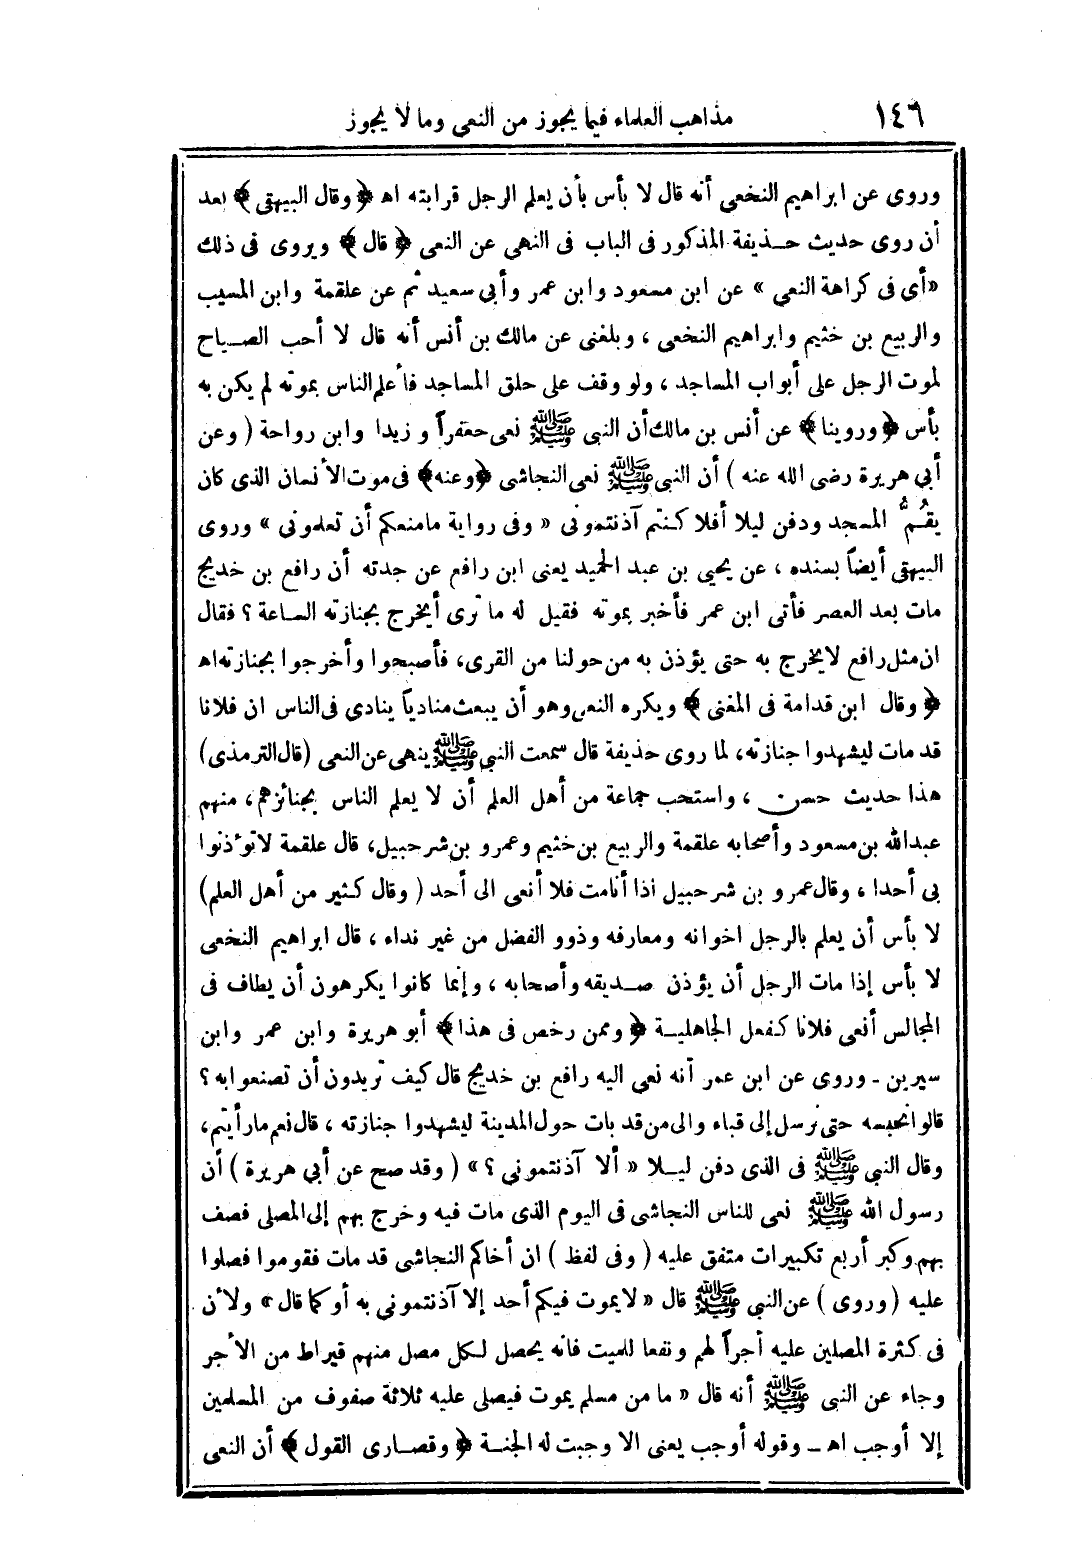 ١٤٦ مذاهب العلماء فيما يجوز من النعي وما لا يجوز
وروى عن ابراهيم النخعي أنه قال لا بأس بأن يعلم الرجل قرابته اه ﴿وقال البيهقي﴾ بعد
أن روى حديث حذيفة المذكور فى الباب فى النهي عن النعى ﴿قال﴾ ويروى فى ذلك
«أى فى كراهة النعي» عن ابن مسعود وابن عمر وأبي سعيد ثم عن علقمة وابن المسيب
والربيع بن خثيم وابراهيم النخعى ، وبلغنى عن مالك بن أنس أنه قال لا أحب الصياح
لموت الرجل على أبواب المساجد ، ولو وقف على حلق المساجد فأعلم الناس بموته لم يكن به
بأس ﴿وروينا﴾ عن أنس بن مالك أن النبي ﷺ نعى جعفراً وزيدا وابن رواحة (وعن
أبي هريرة رضى الله عنه) أن النبي ﷺ نعى النجاشى ﴿وعنه﴾ فى موت الأنسان الذى كان
يقُمُّ المسجد ودفن ليلا أفلا كنتم آذنتموني «وفى رواية مامنعكم أن تعلموني» وروى
البيهقى أيضاً بسنده ، عن يحيى بن عبد الحميد يعنى ابن رافع عن جدته أن رافع بن خديج
مات بعد العصر فأتى ابن عمر فأخبر بموته فقيل له ما ترى أيخرج بجنازته الساعة ؟ فقال
ان مثل رافع لايخرج به حتى يؤذن به من حولنا من القرى، فأصبحوا وأخرجوا بجنازته اه
﴿وقال ابن قدامة فى المغنى﴾ ويكره النعى وهو أن يبعث منادياً ينادى فى الناس ان فلانا
قد مات ليشهدوا جنازته، لما روى حذيفة قال سمعت النبي ﷺ ينهى عن النعى (قال الترمذى)
هذا حديث حسن ، واستحب جماعة من أهل العلم أن لا يعلم الناس بجنائزهم ، منهم
عبدالله بن مسعود وأصحابه علقمة والربيع بن خثيم وعمرو بن شرحبيل، قال علقمة لاتؤذنوا
بي أحدا ، وقال عمرو بن شرحبيل اذا أنامت فلا أنعى الى أحد (وقال كثير من أهل العلم)
لا بأس أن يعلم بالرجل اخوانه ومعارفه وذوو الفضل من غير نداء ، قال ابراهيم النخعى
لا بأس إذا مات الرجل أن يؤذن صديقه وأصحابه ، وإنما كانوا يكرهون أن يطاف فى
المجالس أنعى فلانا كفعل الجاهلية ﴿وممن رخص فى هذا﴾ أبو هريرة وابن عمر وابن
سيرين - وروى عن ابن عمر أنه نعى اليه رافع بن خديج قال كيف تريدون أن تصنعوا به ؟
قالوا نحبسه حتى نرسل إلى قباء والى من قد بات حول المدينة ليشهدوا جنازته ، قال نعم ما رأيتم،
وقال النبي ﷺ فى الذى دفن ليلا «ألا آذنتموني ؟» (وقد صح عن أبي هريرة) أن
رسول الله ﷺ نعى للناس النجاشى فى اليوم الذى مات فيه وخرج بهم إلى المصلى فصف
بهم وكبر أربع تكبيرات متفق عليه (وفى لفظ) ان أخاكم النجاشى قد مات فقوموا فصلوا
عليه (وروى) عن النبي ﷺ قال «لايموت فيكم أحد إلا آذنتموني به أو كما قال» ولأن
فى كثرة المصلين عليه أجراً لهم ونفعا للميت فانه يحصل لكل مصل منهم قيراط من الأجر
وجاء عن النبي ﷺ أنه قال «ما من مسلم يموت فيصلى عليه ثلاثة صفوف من المسلمين
إلا أوجب اه - وقوله أوجب يعنى الا وجبت له الجنة ﴿وقصارى القول﴾ أن النعى